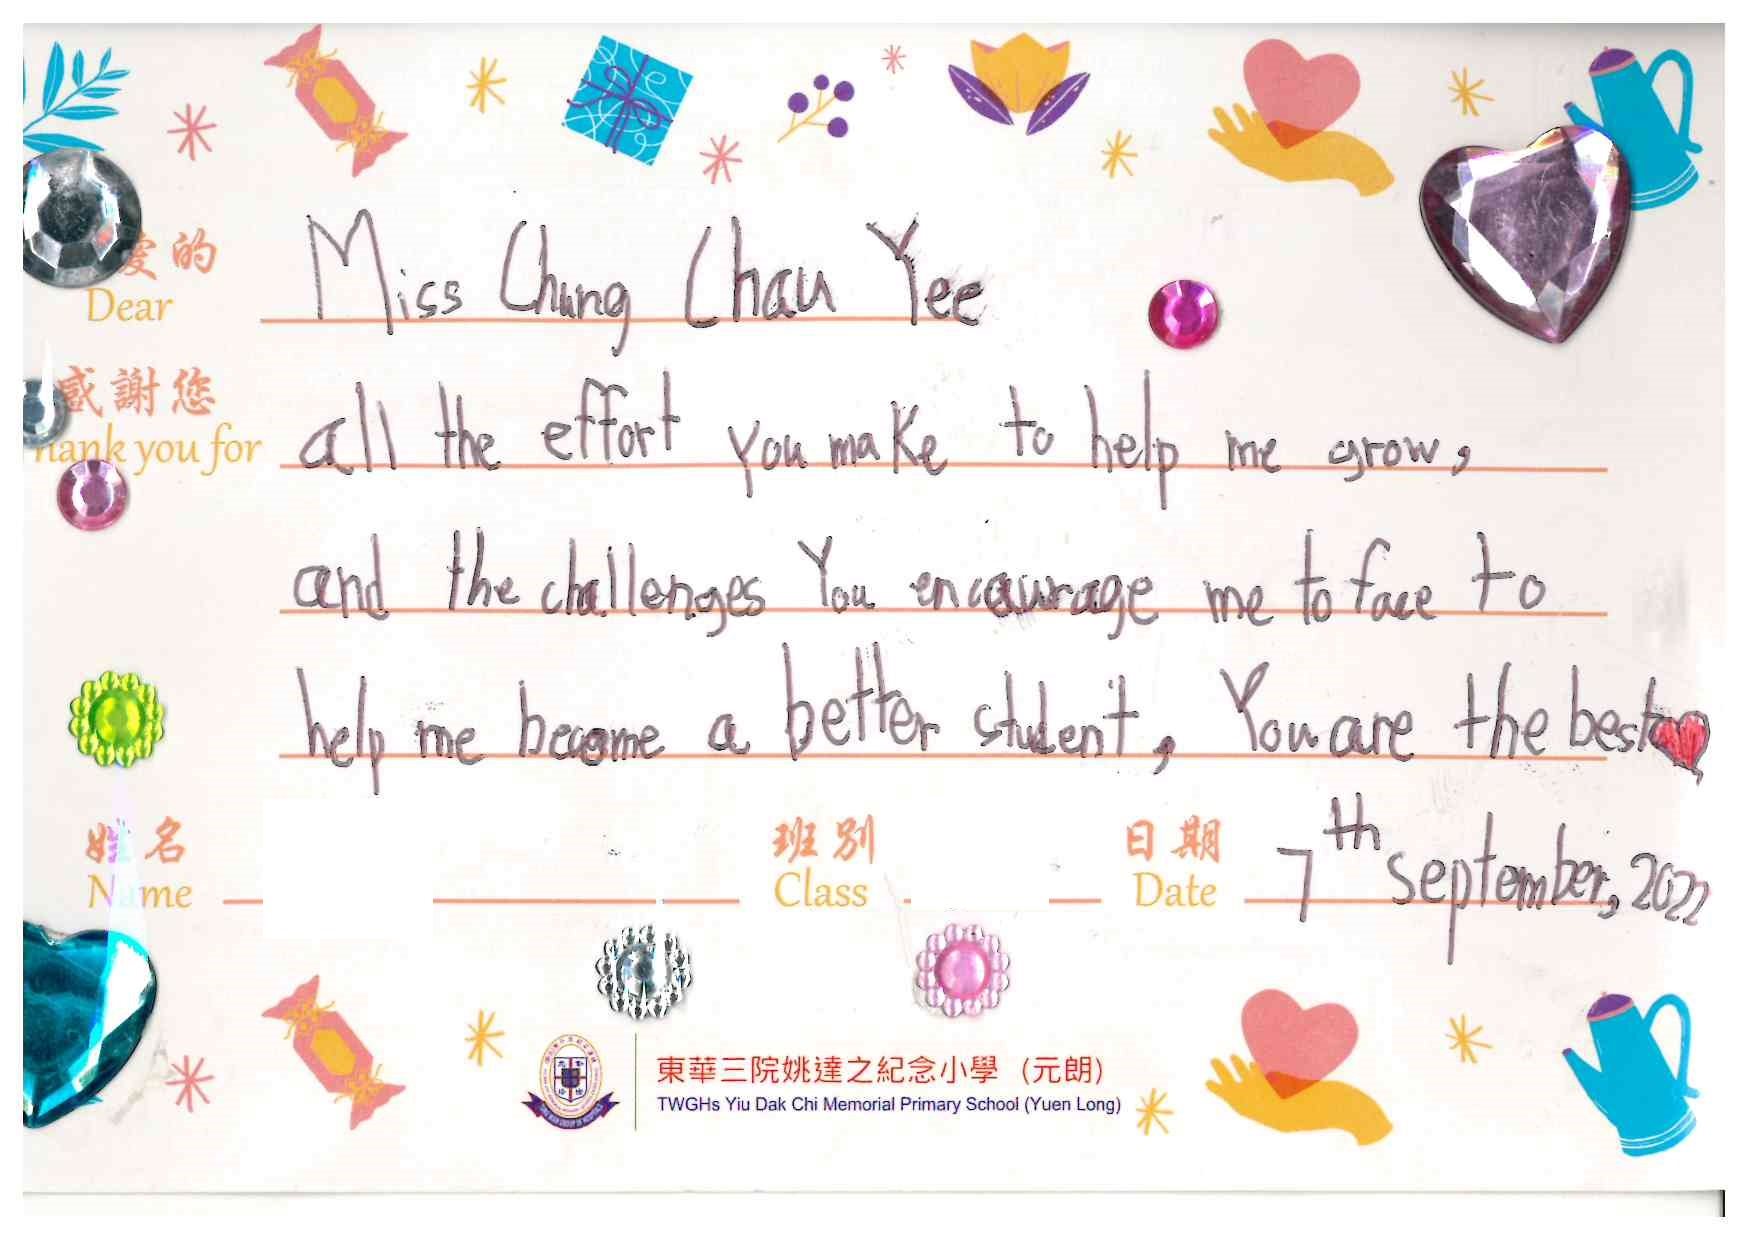 愛的
Dear Miss Chung Chau Yee
感謝您
hank you for all the effort you make to help me grow,
and the challenges You encourage me to face to
help me become a better student, You are the best
姓名 班別 日期
Name Class Date 7th september, 2022
東華三院姚達之紀念小學 (元朗)
TWGHs Yiu Dak Chi Memorial Primary School (Yuen Long)